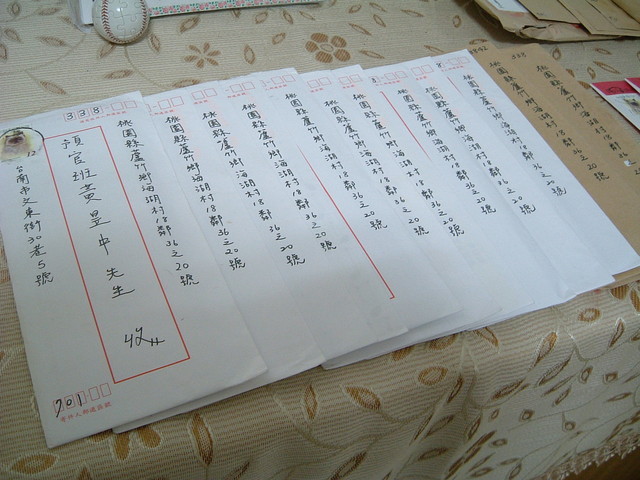 338
桃園縣蘆竹鄉海湖村18鄰36之20號
預官班黃昱中先生 收
台南市文東街30巷5號
701
寄件人郵遞區號
桃園縣蘆竹鄉海湖村18鄰36之20號
桃園縣蘆竹鄉海湖村18鄰36之20號
桃園縣蘆竹鄉海湖村18鄰36之20號
桃園縣蘆竹鄉海湖村18鄰36之20號
桃園縣蘆竹鄉海湖村18鄰36之20號
桃園縣蘆竹鄉海湖村18鄰36之20號
桃園縣蘆竹鄉海湖村18鄰36之20號
338
桃園縣蘆竹鄉海湖村18鄰36之20號